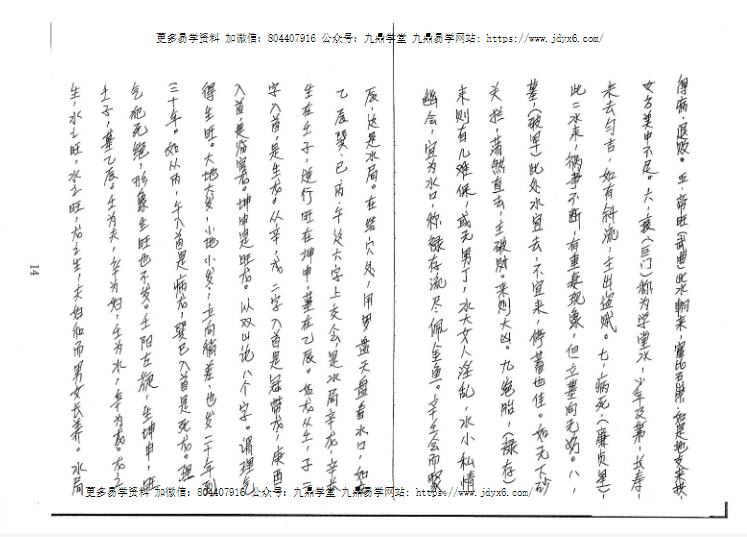 更多易学资料 加微信：804407916 公众号：九鼎学堂 九鼎易学网站：https://www.jdyx6.com/
得病，退败。五、帝旺（武曲）此水朝来，富比石崇，
女貌美中不足。六、衰（巨门）称为学堂水，少年及第，长寿。
来去匀吉，如有斜流，主出盗贼。七、病死，（廉贞星），
此二水来，祸事不断，有重妻现象，但立墓向无妨。八、
墓，（破军）此处水宜去，不宜来，停蓄也佳。如无下砂
关拦，荡然直去，主破财。来则大凶。九绝胎，（禄存）
来则有儿难保，或无男丁，水大女人淫乱，水小私情
幽会，宜为水口，称禄存流尽佩金鱼。辛壬会而聚
辰，这是水局。在结穴处，用罗盘天盘看水口，如
乙辰巽、巳丙、午这六字上交会是水局辛龙，辛长
生在壬子，逆行旺在坤申，墓在乙辰。如龙从壬，子二
字入首，是生龙。从辛，戌二字入首是冠带龙，庚酉
入首，是临官龙。坤申是旺龙。以双山论八个字。谓理气
得生旺。大地大发，小地小发，立向偏差，也发二十年到
三十年。如从丙，午入首是病龙，巽巳入首是死龙。理
气犯死绝，形象生旺也不发。
壬子，墓乙辰。壬为夫，辛为妇，壬为水，辛为龙。龙之
生，水之旺，水之旺，龙之生，夫妇和而男女长养。水局
14
更多易学资料 加微信：804407916 公众号：九鼎学堂 九鼎易学网站：https://www.jdyx6.com/